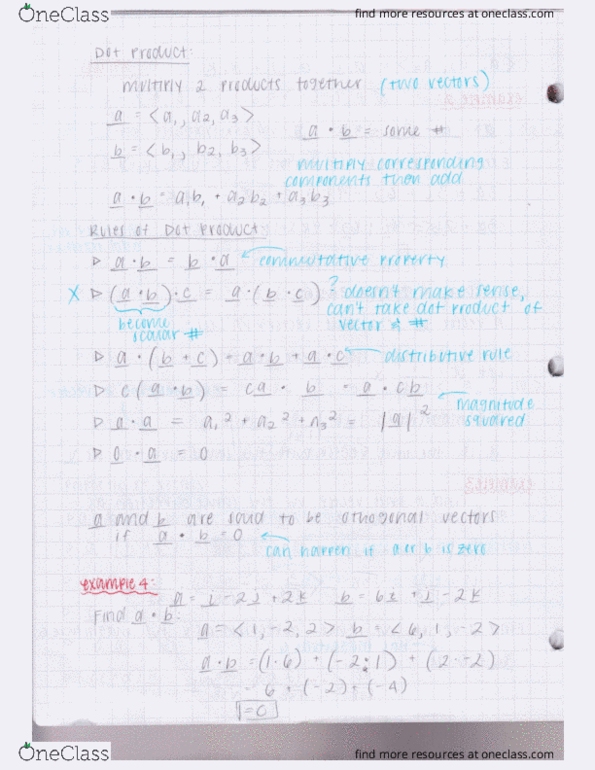 OneClass
find more resources at oneclass.com
Dot Product:
multiply 2 products together (two vectors)
a = <a₁, a₂, a₃>
a · b = some #
b = <b₁, b₂, b₃>
multiply corresponding
components then add
a · b = a₁b₁ + a₂b₂ + a₃b₃
Rules of Dot Product:
▷ a · b = b · a commutative property
X ▷ (a · b) · c = a · (b · c) ? doesn't make sense,
can't take dot product of
vector & #
become
scalar #
▷ a · (b + c) = a · b + a · c distributive rule
▷ c(a · b) = ca · b = a · cb
▷ a · a = a₁² + a₂² + a₃² = |a|²
magnitude
squared
▷ 0 · a = 0
a and b are said to be othogonal vectors
if a · b = 0
can happen if a or b is zero
example 4:
a = i - 2j + 2k b = 6i + j - 2k
Find a · b:
a = <1, -2, 2> b = <6, 1, -2>
a · b = (1·6) + (-2·1) + (2·-2)
= 6 + (-2) + (-4)
= 0
OneClass
find more resources at oneclass.com